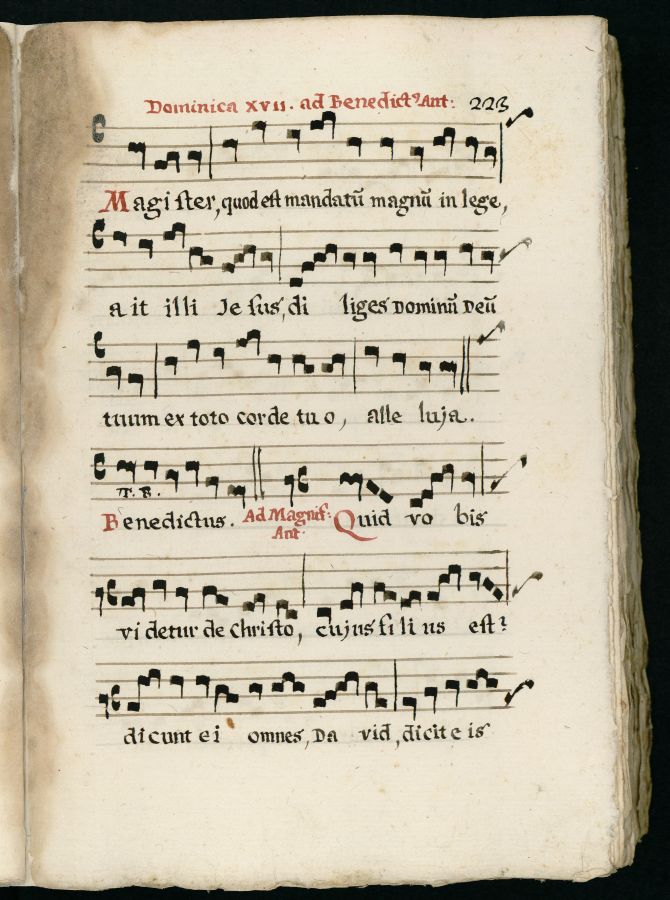 Dominica XVII. ad Benedict⁹ Ant: 223
Magister, quod est mandatū magnū in lege,
ait illi Jesus, di liges Dominū Deū
tuum ex toto corde tuo, alle luja.
T. 8.
Benedictus. Ad Magnif: Quid vo bis
Ant.
videtur de Christo, cujus filius est?
dicunt ei omnes, Da vid, dicit eis